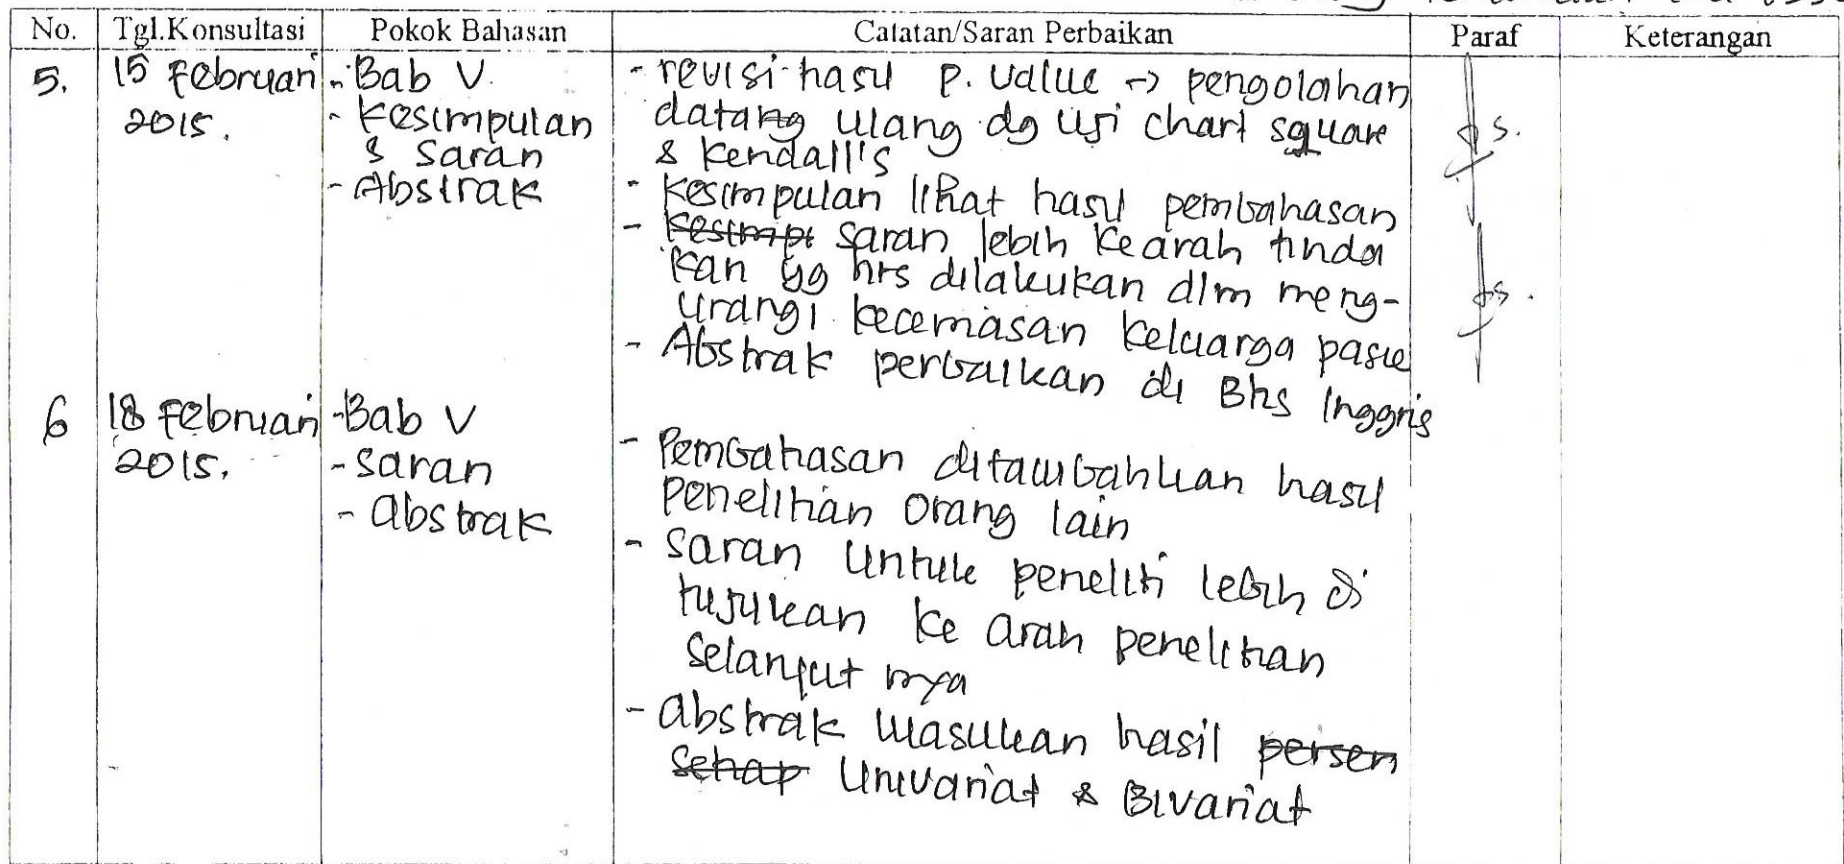 No. Tgl.Konsultasi Pokok Bahasan Catatan/Saran Perbaikan Paraf Keterangan
5. 15 Februari 2015.
- Bab V.
- Kesimpulan
& Saran
- Abstrak
- revisi hasil p. value → pengolahan
datang ulang dg uji chart square
& Kendall's
- Kesimpulan lihat hasil pembahasan
- Kesimp saran lebih kearah tinda
kan yg hrs dilakukan dlm meng-
urangi kecemasan keluarga pasie
- Abstrak perbaikan di Bhs Inggris
6 18 Februari 2015.
- Bab V
- saran
- abstrak
- Pembahasan ditambahkan hasil
penelitian orang lain
- saran untuk peneliti lebih di
tujukan ke arah penelitian
selanjut nya
- abstrak masukan hasil persen
setiap Univariat & Bivariat